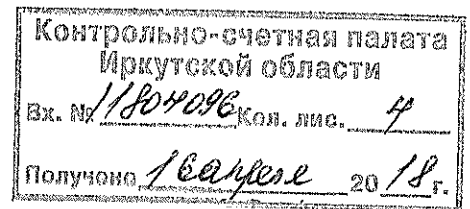 Контрольно-счетная палата
Иркутской области
Вх. № 11804096 Кол. лис. 4
Получено 16 апреля 2018 г.